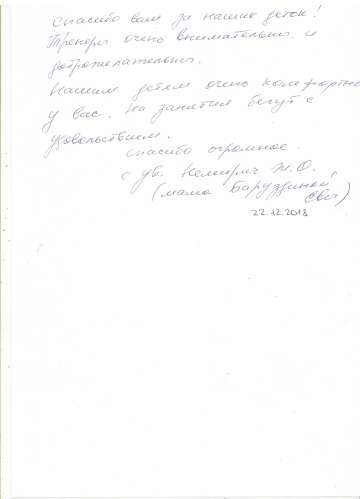 Спасибо вам за наших деток!
Тренеры очень внимательны и
доброжелательны.
Нашим детям очень комфортно
у вас. На занятия бегут с
удовольствием.
Спасибо огромное.
с ув. Н.О.
(мама Баруздиной
Евы)
22.12.2018